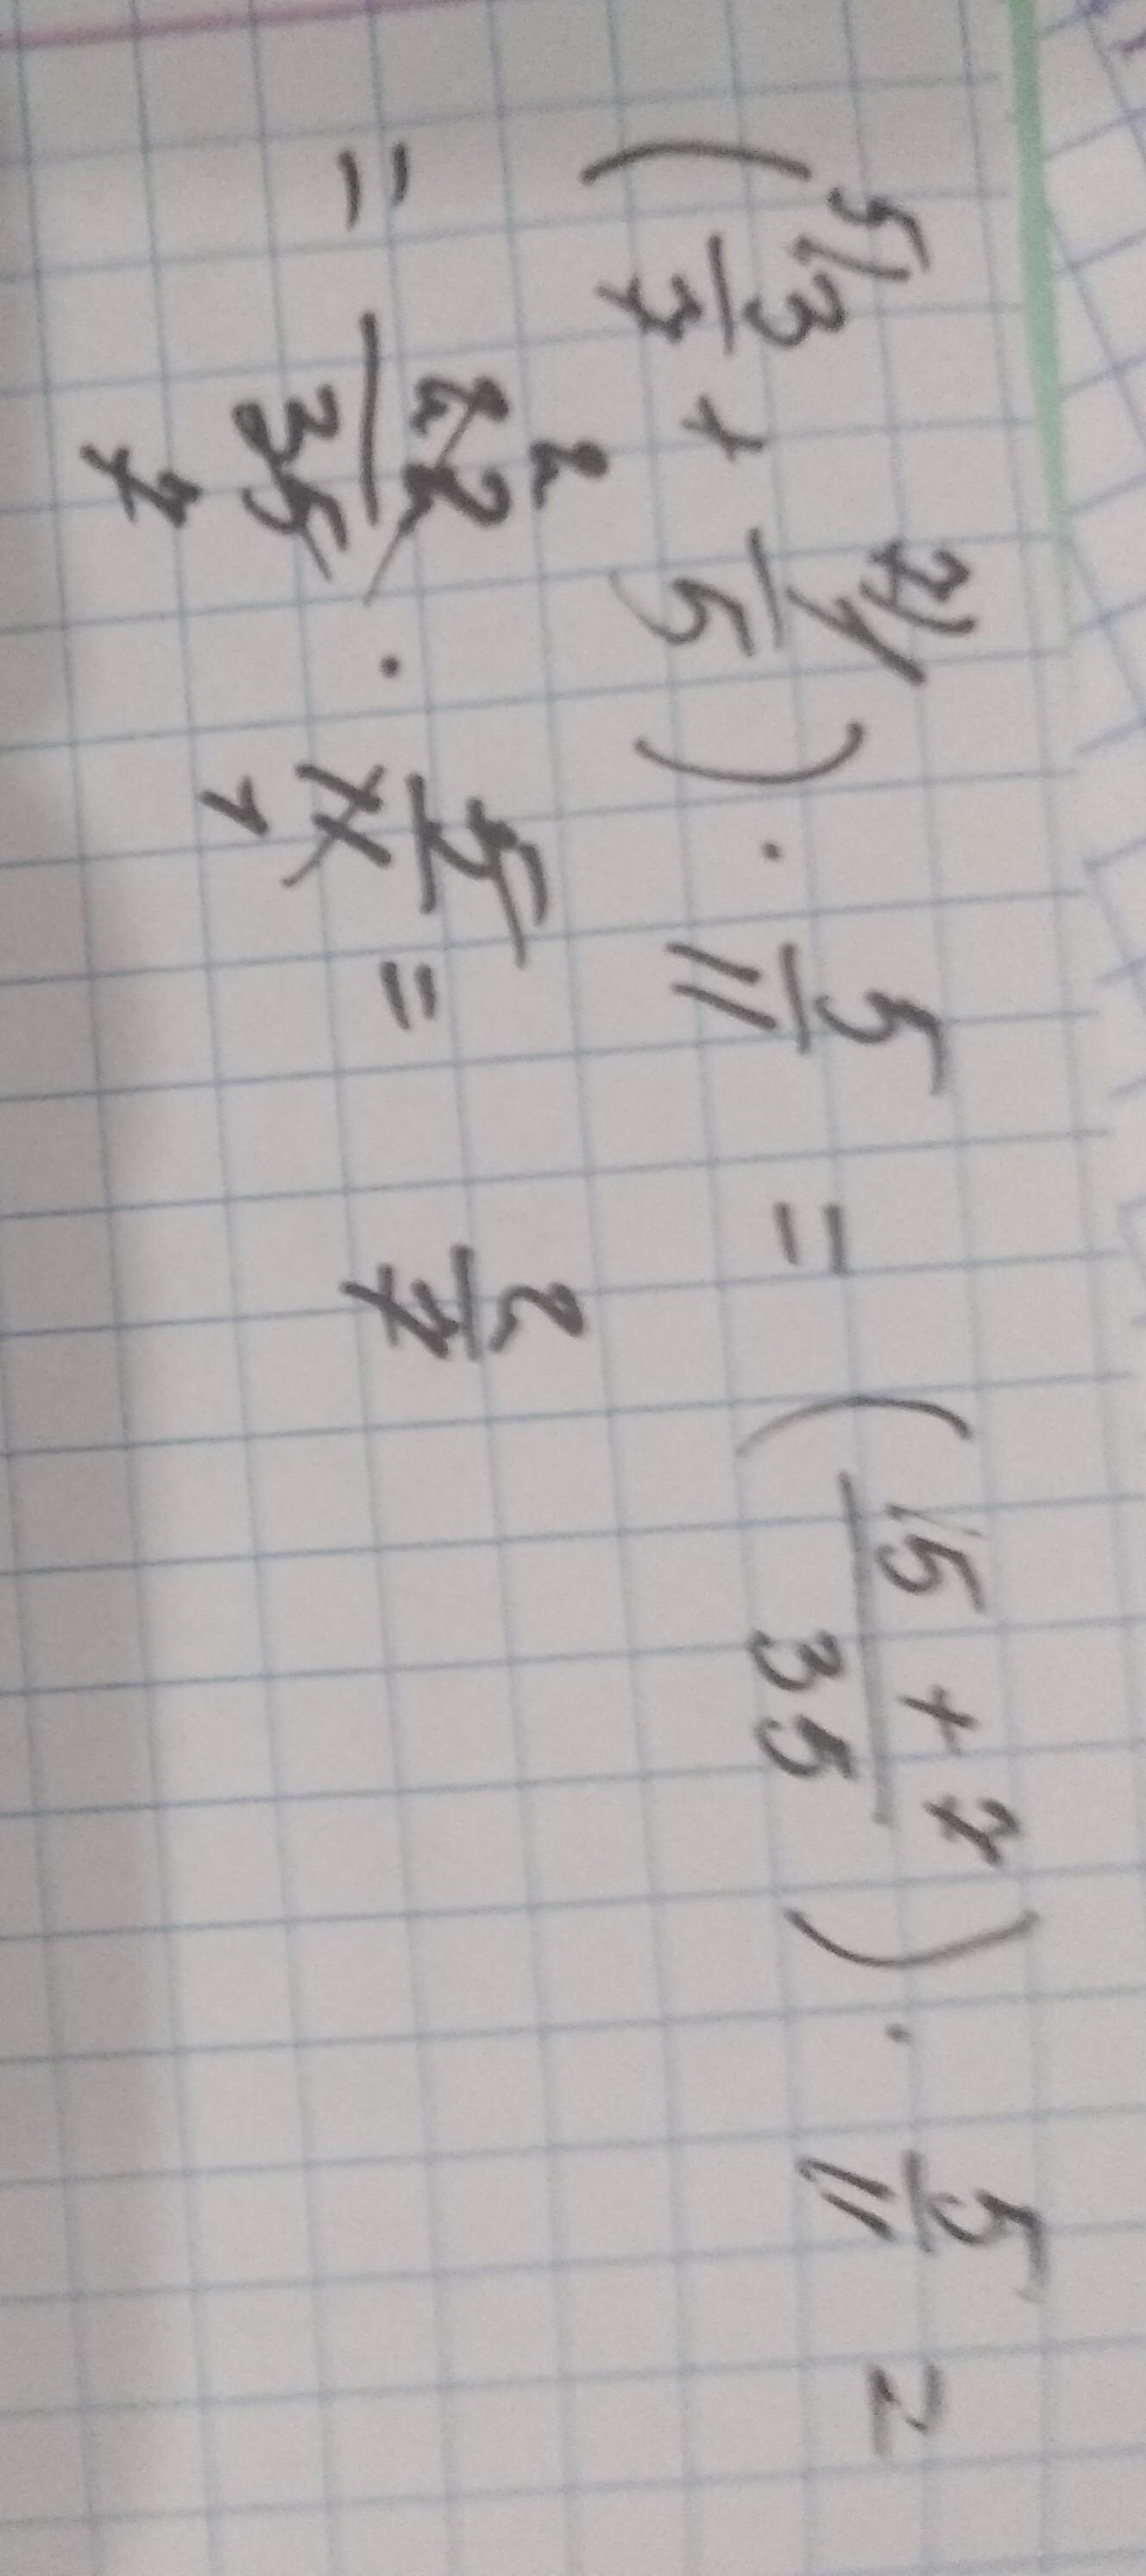 (⁵⁾3/7 + ⁷⁾1/5) · 5/11 = (15 + 7)/35 · 5/11 =
= 22/35 · 5/11 = 2/7